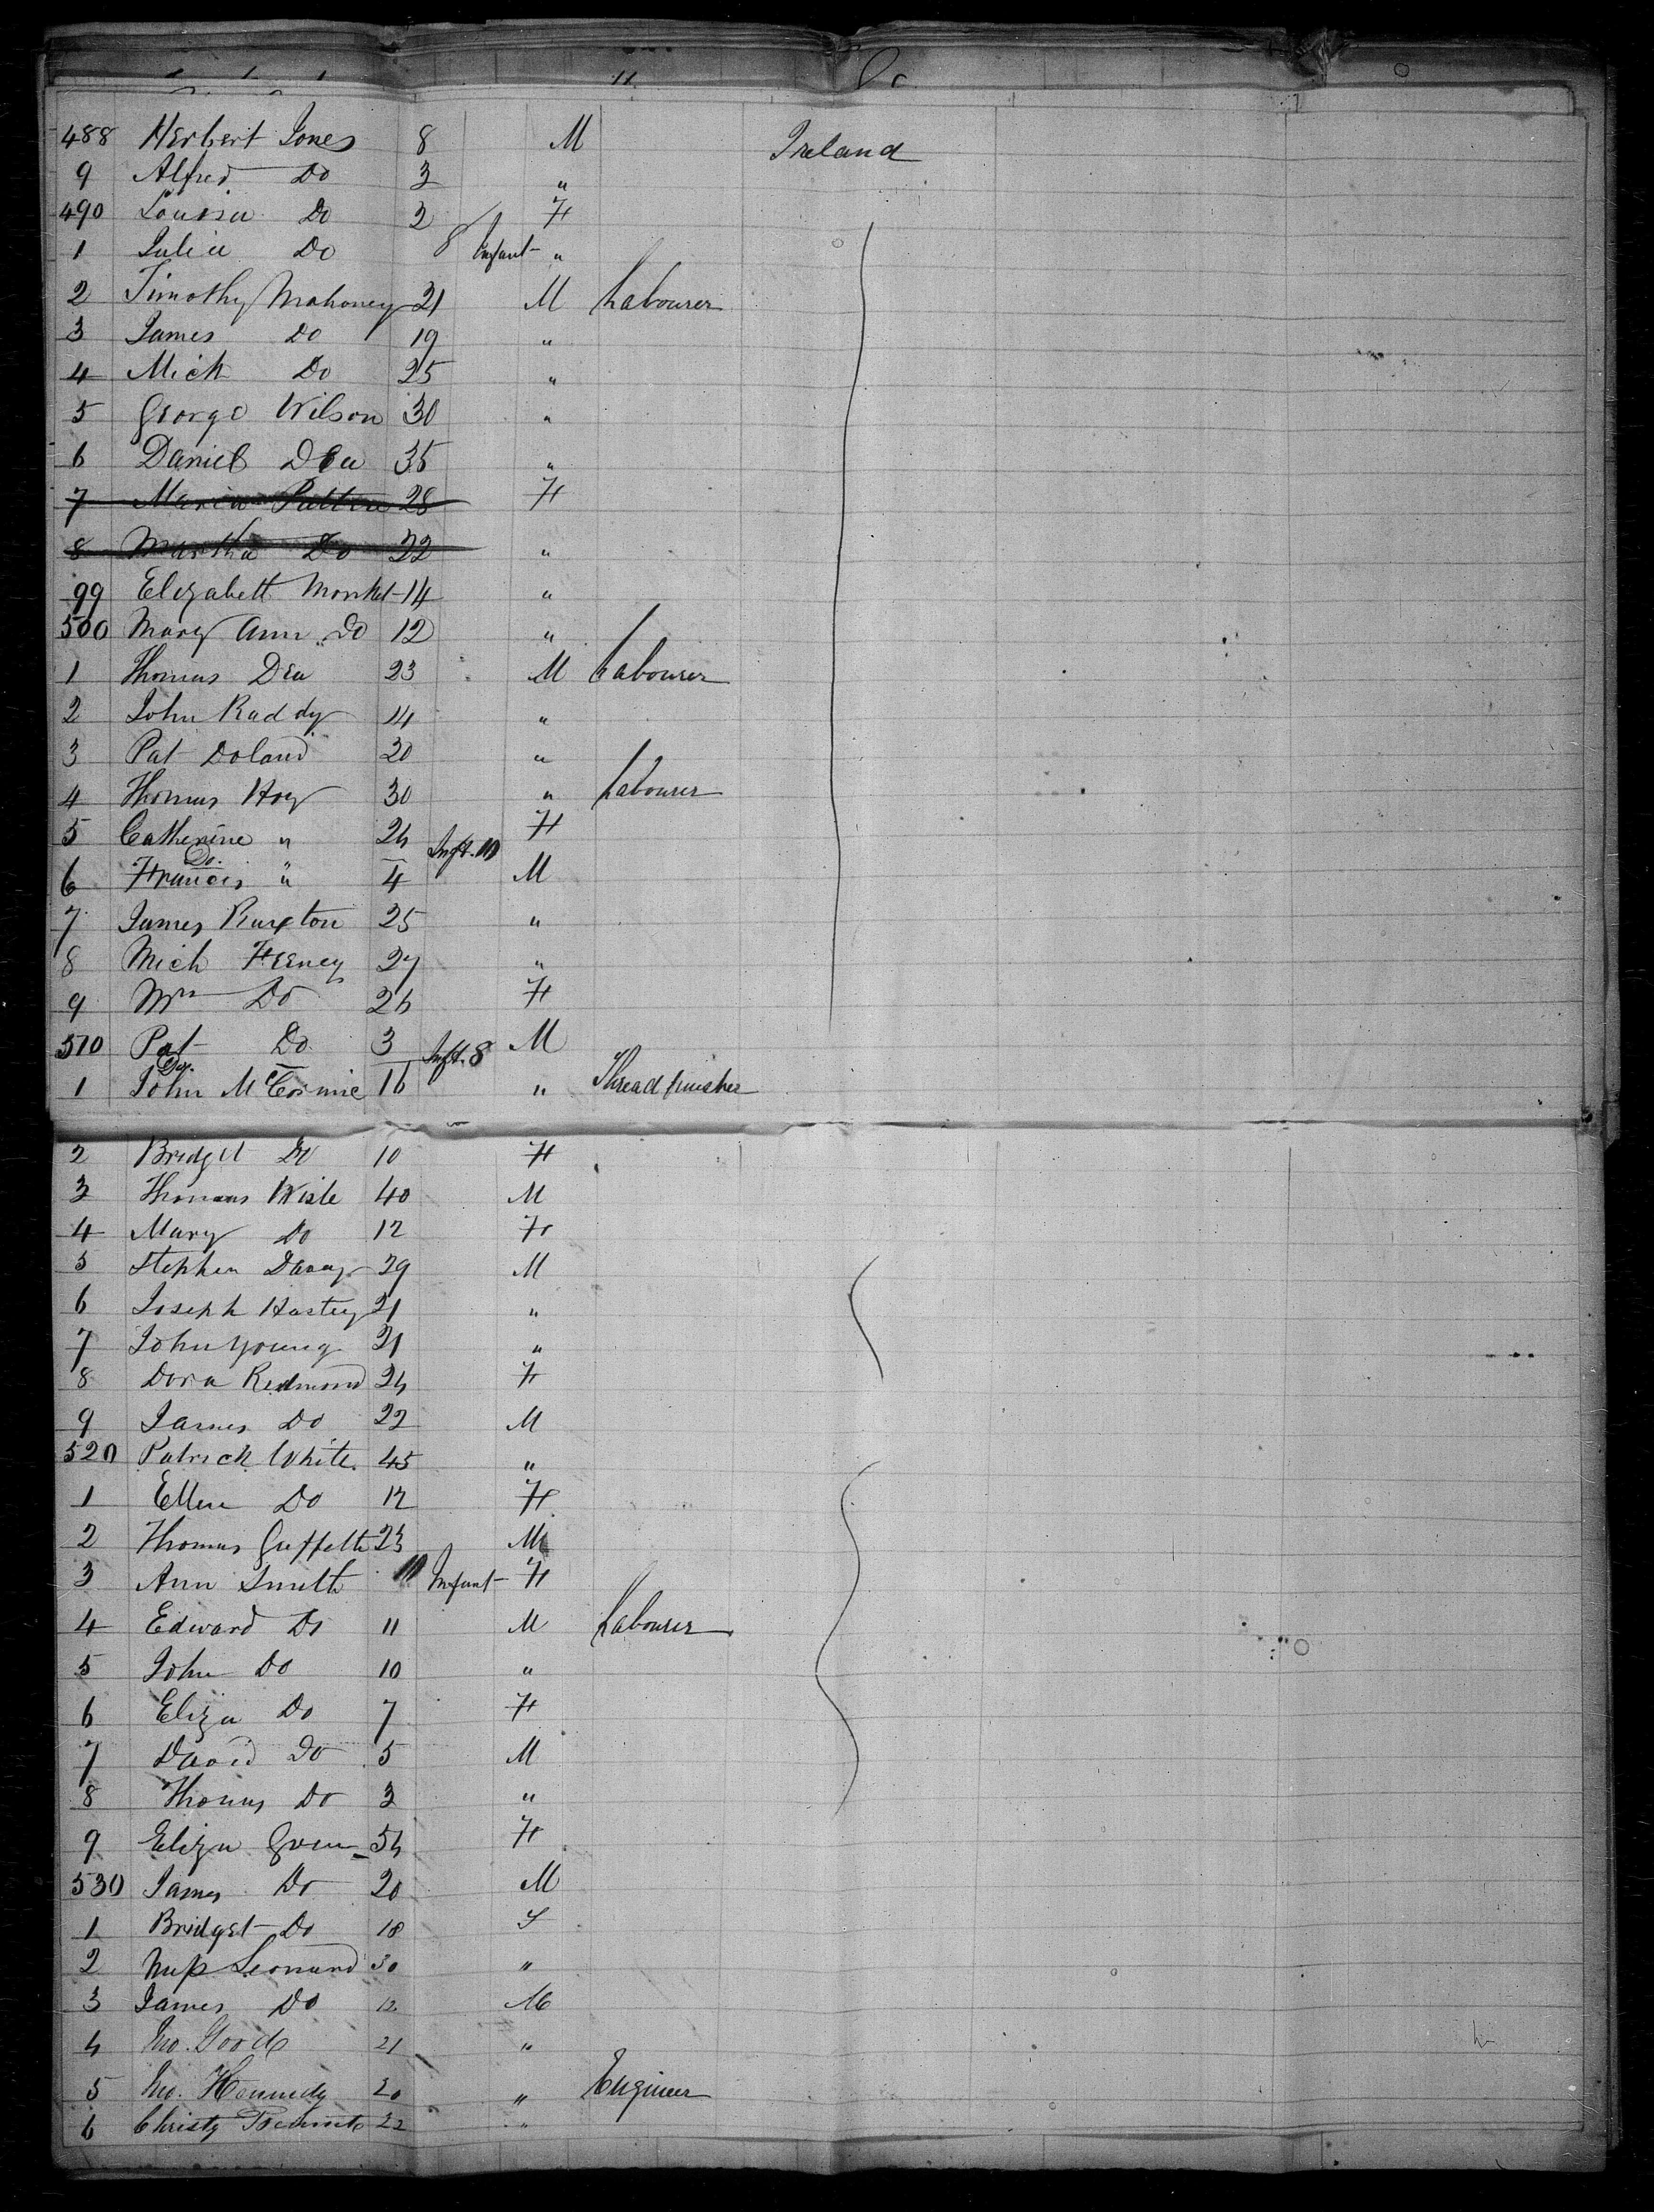 488 Herbert Jones 8 M Ireland
9 Alfred Do 3 "
490 Louisa Do 2 F
1 Julia Do 8 Infant "
2 Timothy Mahoney 21 M Labourer
3 James Do 19 "
4 Mich Do 25 "
5 George Wilson 30 "
6 Daniel Dea 35 "
7 Maria Patton 28 F
8 Martha Do 22 "
99 Elizabeth 14 "
500 Mary Ann Do 12 "
1 Thomas Dea 23 M Labourer
2 John Raddy 14 "
3 Pat Doland 20 "
4 Thomas Hoey 30 " Labourer
5 Catherine " 24 F
Do. Inft. 10
6 Francis " 4 M
7 James Ruxton 25 "
8 Mich Feeney 27 "
9 Mrs Do 26 F
510 Pat Do 3 M
Do. Inft. 8
1 John McCormic 16 " Thread finisher
2 Bridget Do 10 F
3 Thomas 40 M
4 Mary Do 12 F
5 Stephen 29 M
6 Joseph Hastey 21 "
7 John Young 21 "
8 Dora Redmond 24 F
9 James Do 22 M
520 Patrick White. 45 "
1 Ellen Do 12 F
2 Thomas 23 M
3 Ann Smith 10 Infant F
4 Edward Do 11 M Labourer
5 John Do 10 "
6 Eliza Do 7 F
7 David Do 5 M
8 Thomas Do 3 "
9 Eliza Green 54 F
530 James Do 20 M
1 Bridget Do 18 F
2 Leonard 30 "
3 James Do 12 M
4 Jno. Goode 21 "
5 Jno. Kennedy 20 " Engineer
6 Christy 22 "